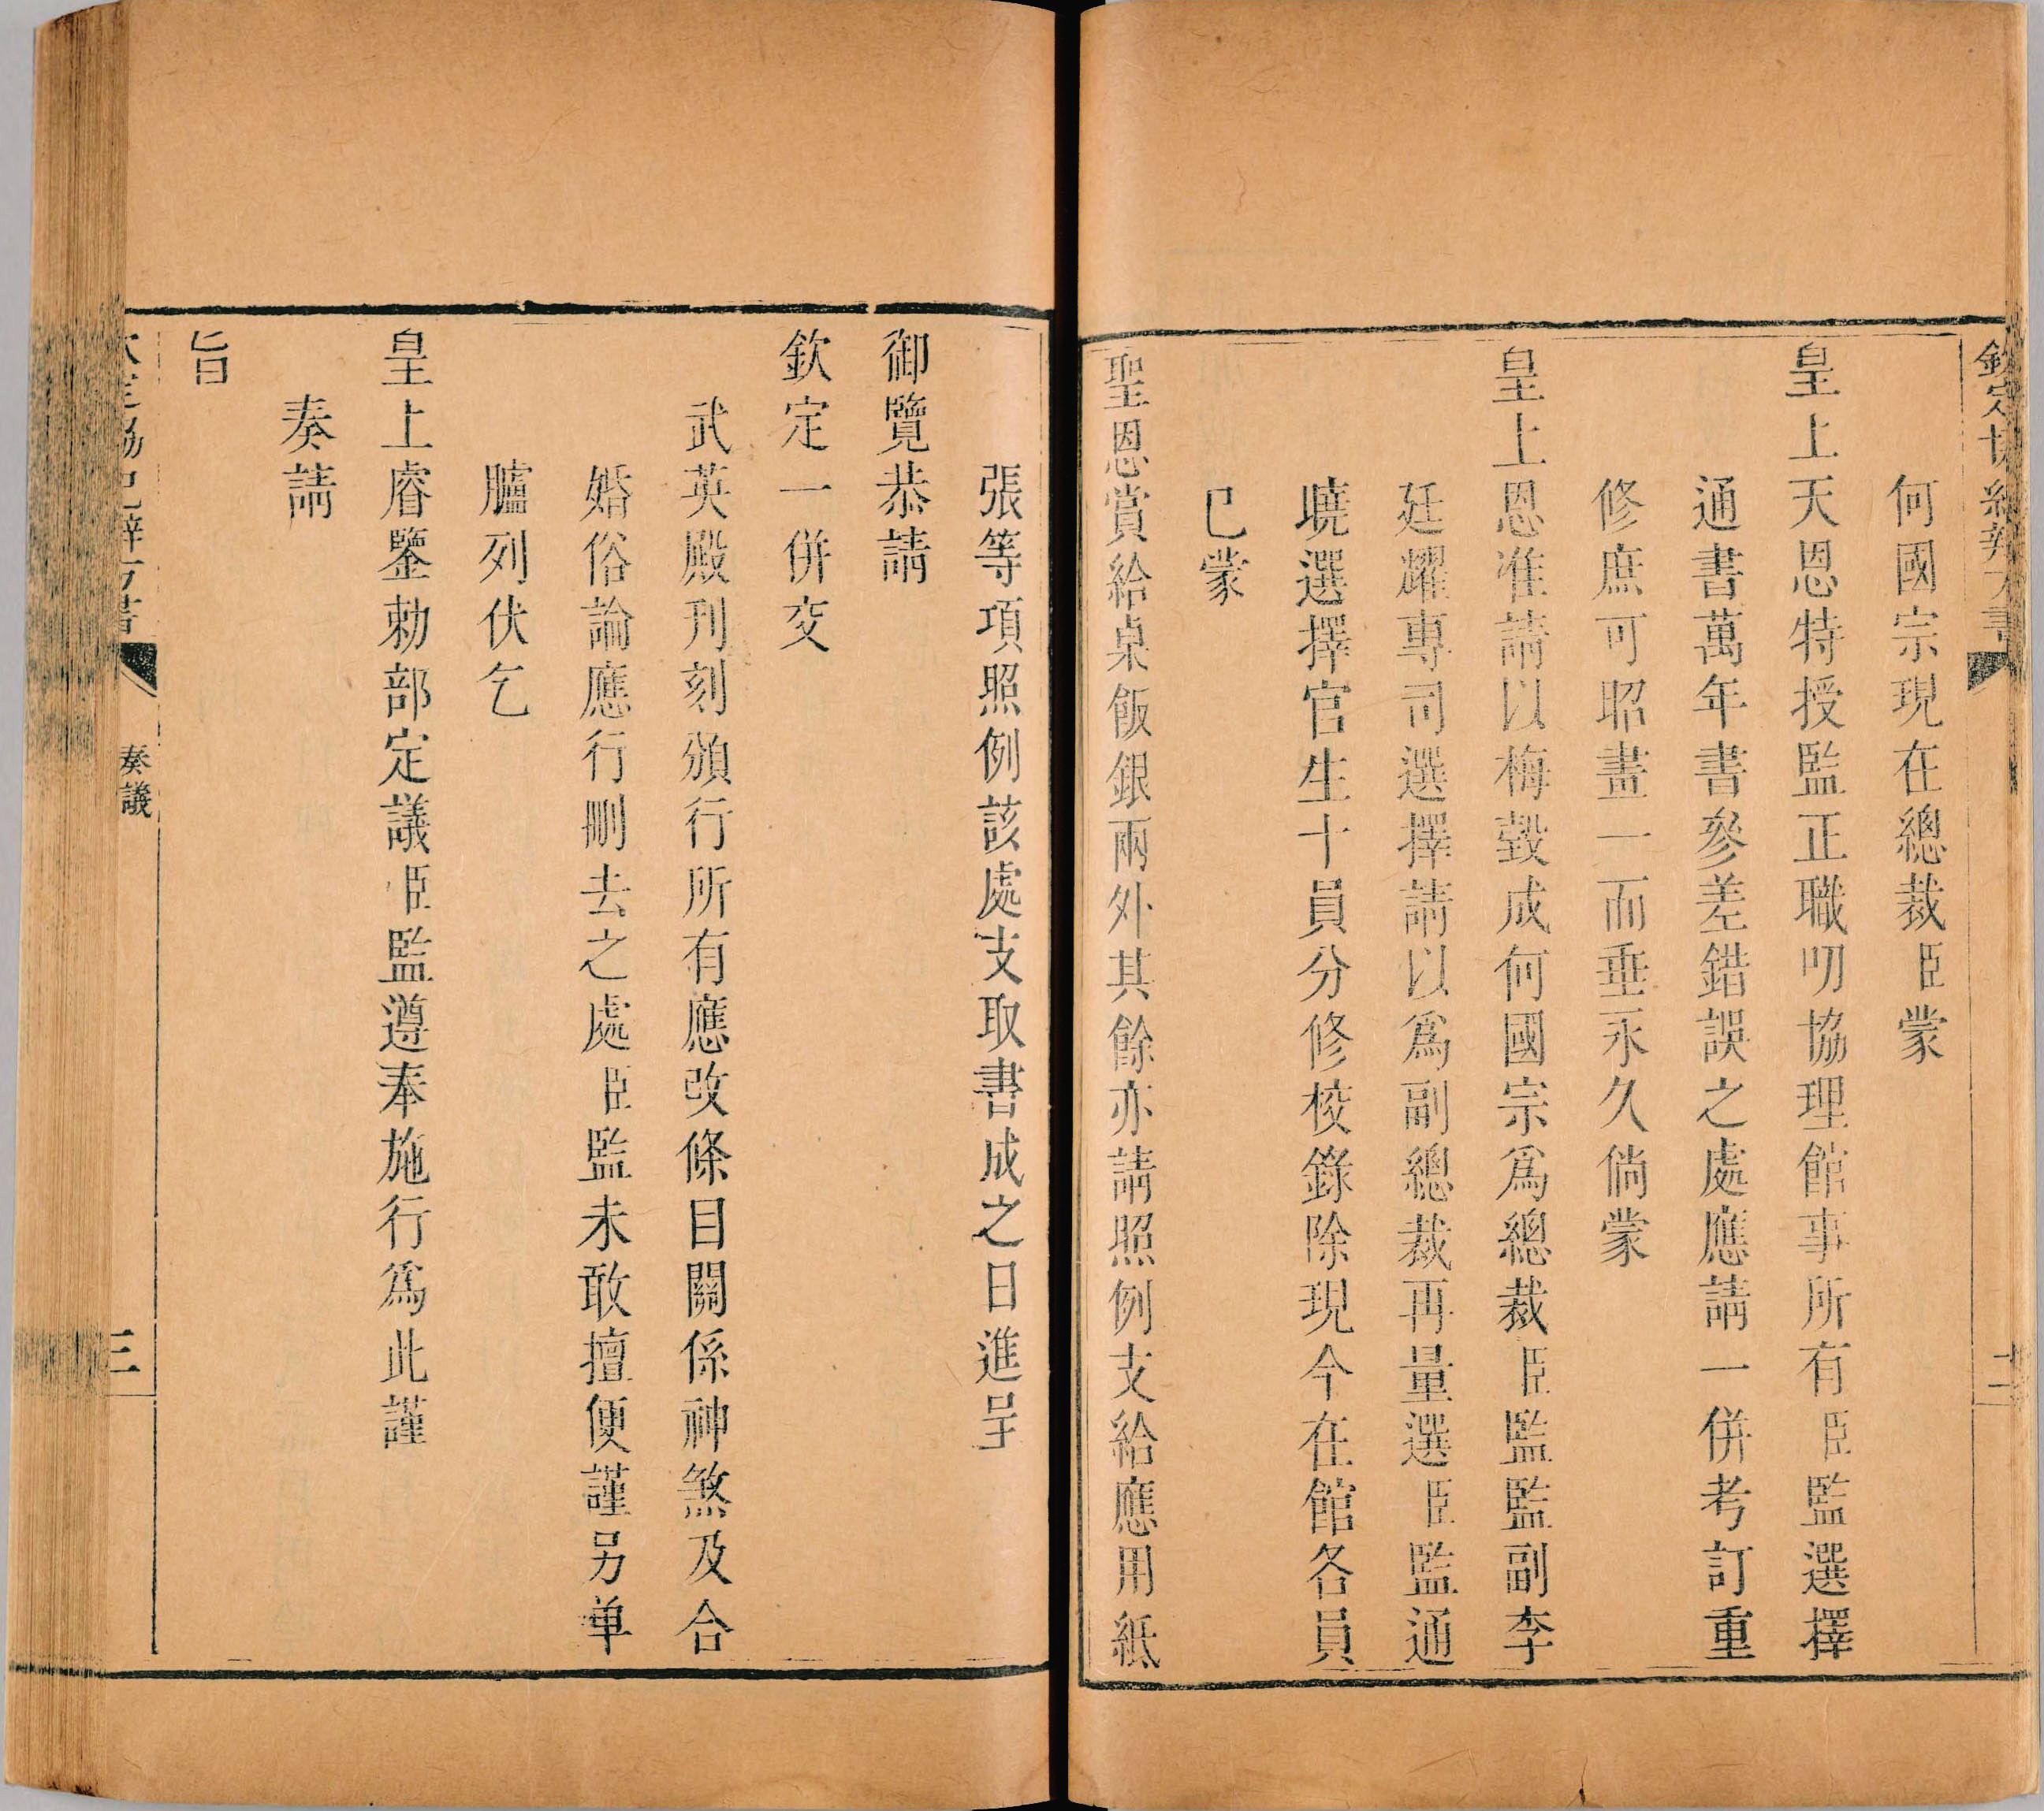 欽定協紀辨方書
何國宗現在總裁臣蒙
皇上天恩特授監正職叨協理館事所有臣監選擇
通書萬年書參差錯誤之處應請一併考訂重
修庶可昭畫一而垂永久倘蒙
皇上恩准請以梅瑴成何國宗爲總裁臣監監副李
廷耀專司選擇請以爲副總裁再量選臣監通
曉選擇官生十員分修校錄除現今在館各員
已蒙
聖恩賞給桌飯銀兩外其餘亦請照例支給應用紙
張等項照例該處支取書成之日進呈
御覽恭請
欽定一併交
武英殿刊刻頒行所有應改條目關係神煞及合
婚俗論應行刪去之處臣監未敢擅便謹另单
臚列伏乞
皇上睿鑒勅部定議臣監遵奉施行爲此謹
奏請
旨
奏議
三